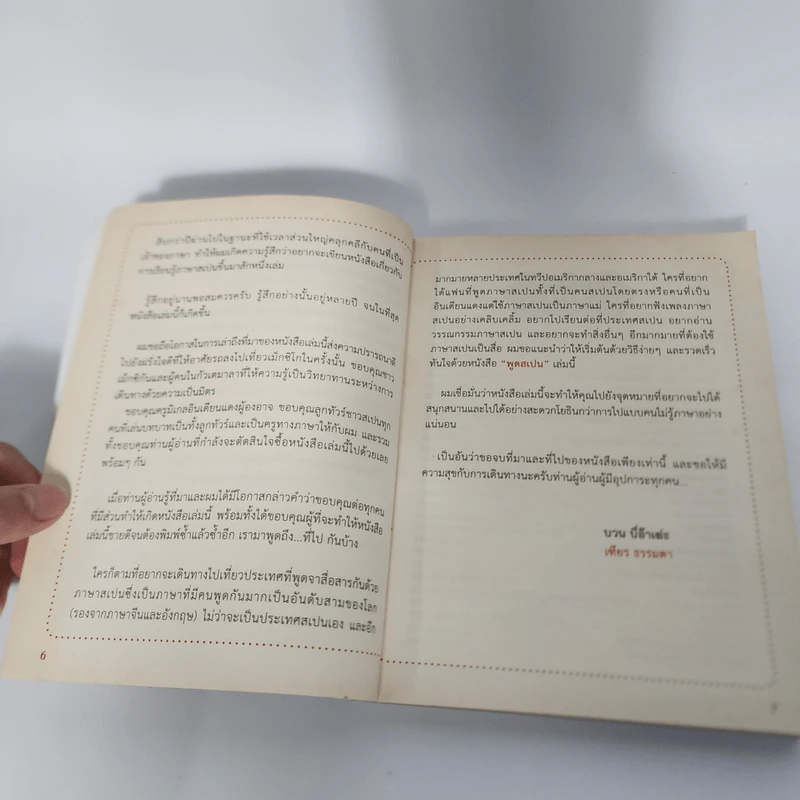 สิบกว่าปีผ่านไปในฐานะที่ใช้เวลาส่วนใหญ่คลุกคลีกับคนที่เป็น
เจ้าของภาษา ทำให้ผมเกิดความรู้สึกว่าอยากจะเขียนหนังสือเกี่ยวกับ
การเรียนรู้ภาษาสเปนขึ้นมาสักหนึ่งเล่ม
รู้สึกอยู่นานพอสมควรครับ รู้สึกอย่างนั้นอยู่หลายปี จนในที่สุด
หนังสือเล่มนี้ก็เกิดขึ้น
ผมขอถือโอกาสในการเล่าถึงที่มาของหนังสือเล่มนี้ส่งความปรารถนาดี
ไปยังฝรั่งใจดีที่ให้อาศัยรถลงไปเที่ยวเม็กซิโกในครั้งนั้น ขอบคุณชาว
เม็กซิกันและผู้คนในกัวเตมาลาที่ให้ความรู้เป็นวิทยาทานระหว่างการ
เดินทางด้วยความเป็นมิตร
ขอบคุณครูมิเกลอินเดียนแดงผู้องอาจ ขอบคุณลูกทัวร์ชาวสเปนทุก
คนที่เล่นบทบาทเป็นทั้งลูกทัวร์และเป็นครูทางภาษาให้กับผม และรวม
ทั้งขอบคุณท่านผู้อ่านที่กำลังจะตัดสินใจซื้อหนังสือเล่มนี้ไปด้วยเลย
พร้อมๆ กัน
เมื่อท่านผู้อ่านรู้ที่มาและผมได้มีโอกาสกล่าวคำว่าขอบคุณต่อทุกคน
ที่มีส่วนทำให้เกิดหนังสือเล่มนี้ พร้อมทั้งได้ขอบคุณผู้ที่จะทำให้หนังสือ
เล่มนี้ขายดีจนต้องพิมพ์ซ้ำแล้วซ้ำอีก เรามาพูดถึง...ที่ไป กันบ้าง
ใครก็ตามที่อยากจะเดินทางไปเที่ยวประเทศที่พูดจาสื่อสารกันด้วย
ภาษาสเปนซึ่งเป็นภาษาที่มีคนพูดกันมากเป็นอันดับสามของโลก
(รองจากภาษาจีนและอังกฤษ) ไม่ว่าจะเป็นประเทศสเปนเอง และอีก
6
มากมายหลายประเทศในทวีปอเมริกากลางและอเมริกาใต้ ใครที่อยาก
ได้แฟนที่พูดภาษาสเปนทั้งที่เป็นคนสเปนโดยตรงหรือคนที่เป็น
อินเดียนแดงแต่ใช้ภาษาสเปนเป็นภาษาแม่ ใครที่อยากฟังเพลงภาษา
สเปนอย่างเคลิบเคลิ้ม อยากไปเรียนต่อที่ประเทศสเปน อยากอ่าน
วรรณกรรมภาษาสเปน และอยากจะทำสิ่งอื่นๆ อีกมากมายที่ต้องใช้
ภาษาสเปนเป็นสื่อ ผมขอแนะนำว่าให้เริ่มต้นด้วยวิธีง่ายๆ และรวดเร็ว
ทันใจด้วยหนังสือ "พูดสเปน" เล่มนี้
ผมเชื่อมั่นว่าหนังสือเล่มนี้จะทำให้คุณไปยังจุดหมายที่อยากจะไปได้
สนุกสนานและไปได้อย่างสะดวกโยธินกว่าการไปแบบคนไม่รู้ภาษาอย่าง
แน่นอน
เป็นอันว่าขอจบที่มาและที่ไปของหนังสือเพียงเท่านี้ และขอให้มี
ความสุขกับการเดินทางนะครับท่านผู้อ่านผู้มีอุปการะทุกคน...
บวน บิ๊อ๊าเฆ่ะ
เฑียร ธรรมดา